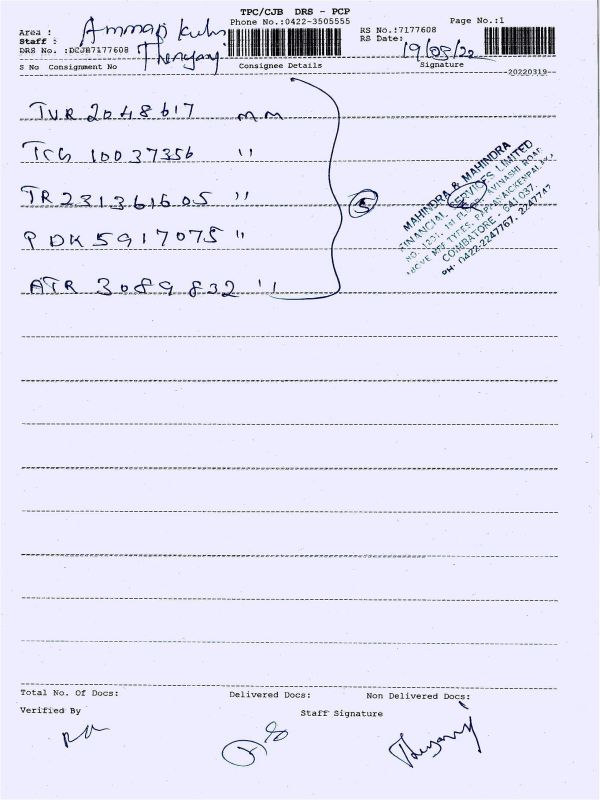 TPC/CJB DRS - PCP
Phone No.:0422-3505555
Page No.:1
Area :
Staff :
DRS No. :DCJB7177608
RS No.:7177608
RS Date: 19/03/22
S No Consignment No Consignee Details Signature
20220319
TVR 2048617 M.M
TCG 10037356 "
TR 231361605 "
PDK 5917075 "
ATR 3089832 "
5
MAHINDRA & MAHINDRA
FINANCIAL SERVICES LIMITED
COIMBATORE - 641 037.
PH: 0422-2247767, 2247747
Total No. Of Docs: Delivered Docs: Non Delivered Docs:
Verified By Staff Signature